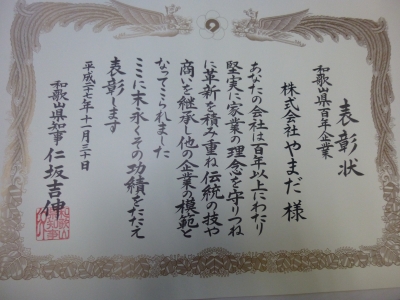 表彰状
和歌山県百年企業
株式会社やまだ様
あなたの会社は百年以上にわたり
堅実に家業の理念を守りつね
に革新を積み重ね伝統の技や
商いを継承し他の企業の模範と
なってこられました
ここに末永くその功績をたたえ
表彰します
平成二十七年十一月三十日
和歌山県知事 仁坂吉伸